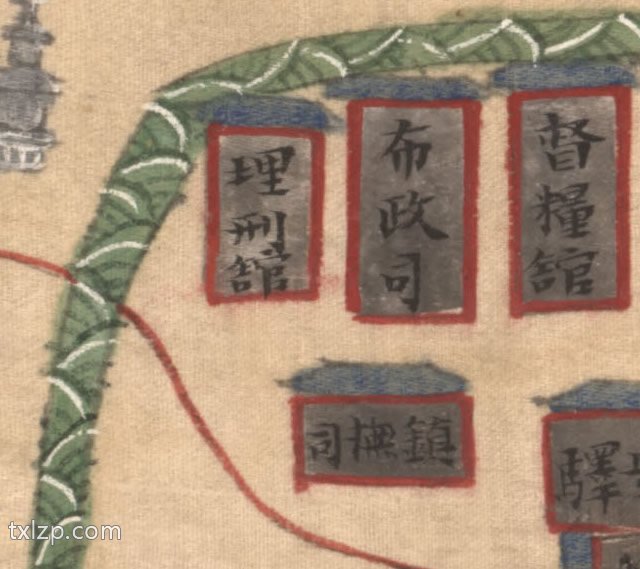 督糧館
布政司
理刑館
鎮撫司
驛
txlzp.com